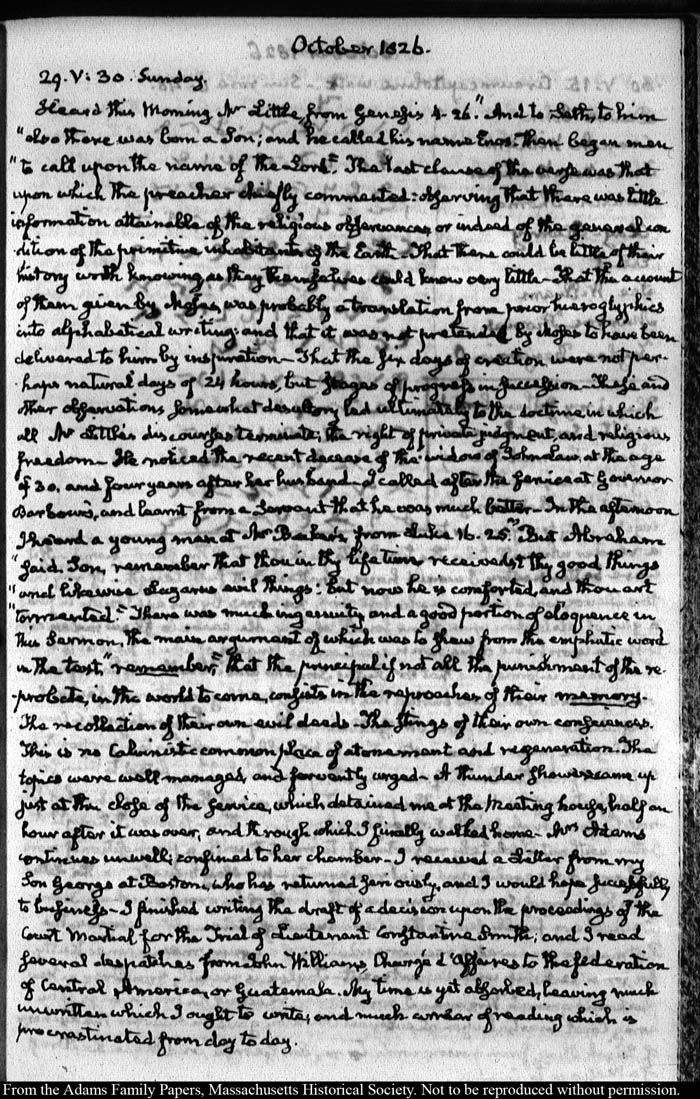 October 1826.
29. V: 30. Sunday.
Heard this Morning Mr Little, from Genesis 4. 26. "And to Seth, to him
"also there was born a Son; and he called his name Enos: then began men
"to call upon the name of the Lord." The last clause of the verse was that
upon which the preacher chiefly commented: observing that there was little
information attainable of the religious observances, or indeed of the general con
dition of the primitive inhabitants of the Earth. That there could be little of their
history worth knowing as they themselves could know very little - That the account
of them given by Moses, was probably a translation from prior hieroglyphics
into alphabetical writing; and that it was not pretended by Moses to have been
delivered to him by inspiration - That the six days of creation were not per-
haps natural days of 24 hours, but stages of progress in succession - These and
other observations somewhat desultory led ultimately to the doctrine in which
all Mr Little's discourses terminate; the right of private judgment, and religious
freedom - He noticed the recent decease of the widow of John Law, at the age
of 30. and four years after her husband - I called after the service at Governor
Barbour's, and learnt from a Servant that he was much better - In the afternoon
I heard a young man at Mr Baker's, from Luke 16. 25. "But Abraham
"said, Son, remember that thou in thy lifetime receivedst thy good things
"and likewise Lazarus evil things: but now he is comforted, and thou art
"tormented." There was much ingenuity and a good portion of eloquence in
this Sermon, the main argument of which was to shew from the emphatic word
in the text, "remember," that the principal if not all the punishment of the re-
-probate, in the world to come, consists in the reproaches of their memory.
The recollection of their own evil deeds - The stings of their own consciences.
This is no Calvinistic common place of atonement and regeneration. The
topics were well managed, and fervently urged - A thunder shower came up
just at the close of the service, which detained me at the Meeting house, half an
hour after it was over, and through which I finally walked home - Mrs Adams
continues unwell; confined to her chamber - I received a Letter from my
Son George at Boston, who has returned seriously, and I would hope successfully
to business - I finished writing the draft of a decision upon the proceedings of the
Court Martial for the Trial of Lieutenant Constantine Smith; and I read
several despatches from John Williams Chargé d'Affaires to the federation
of Central America, or Guatemala. My time is yet absorbed, leaving much
unwritten which I ought to write; and much arrear of reading which is
procrastinated from day to day.
From the Adams Family Papers, Massachusetts Historical Society. Not to be reproduced without permission.